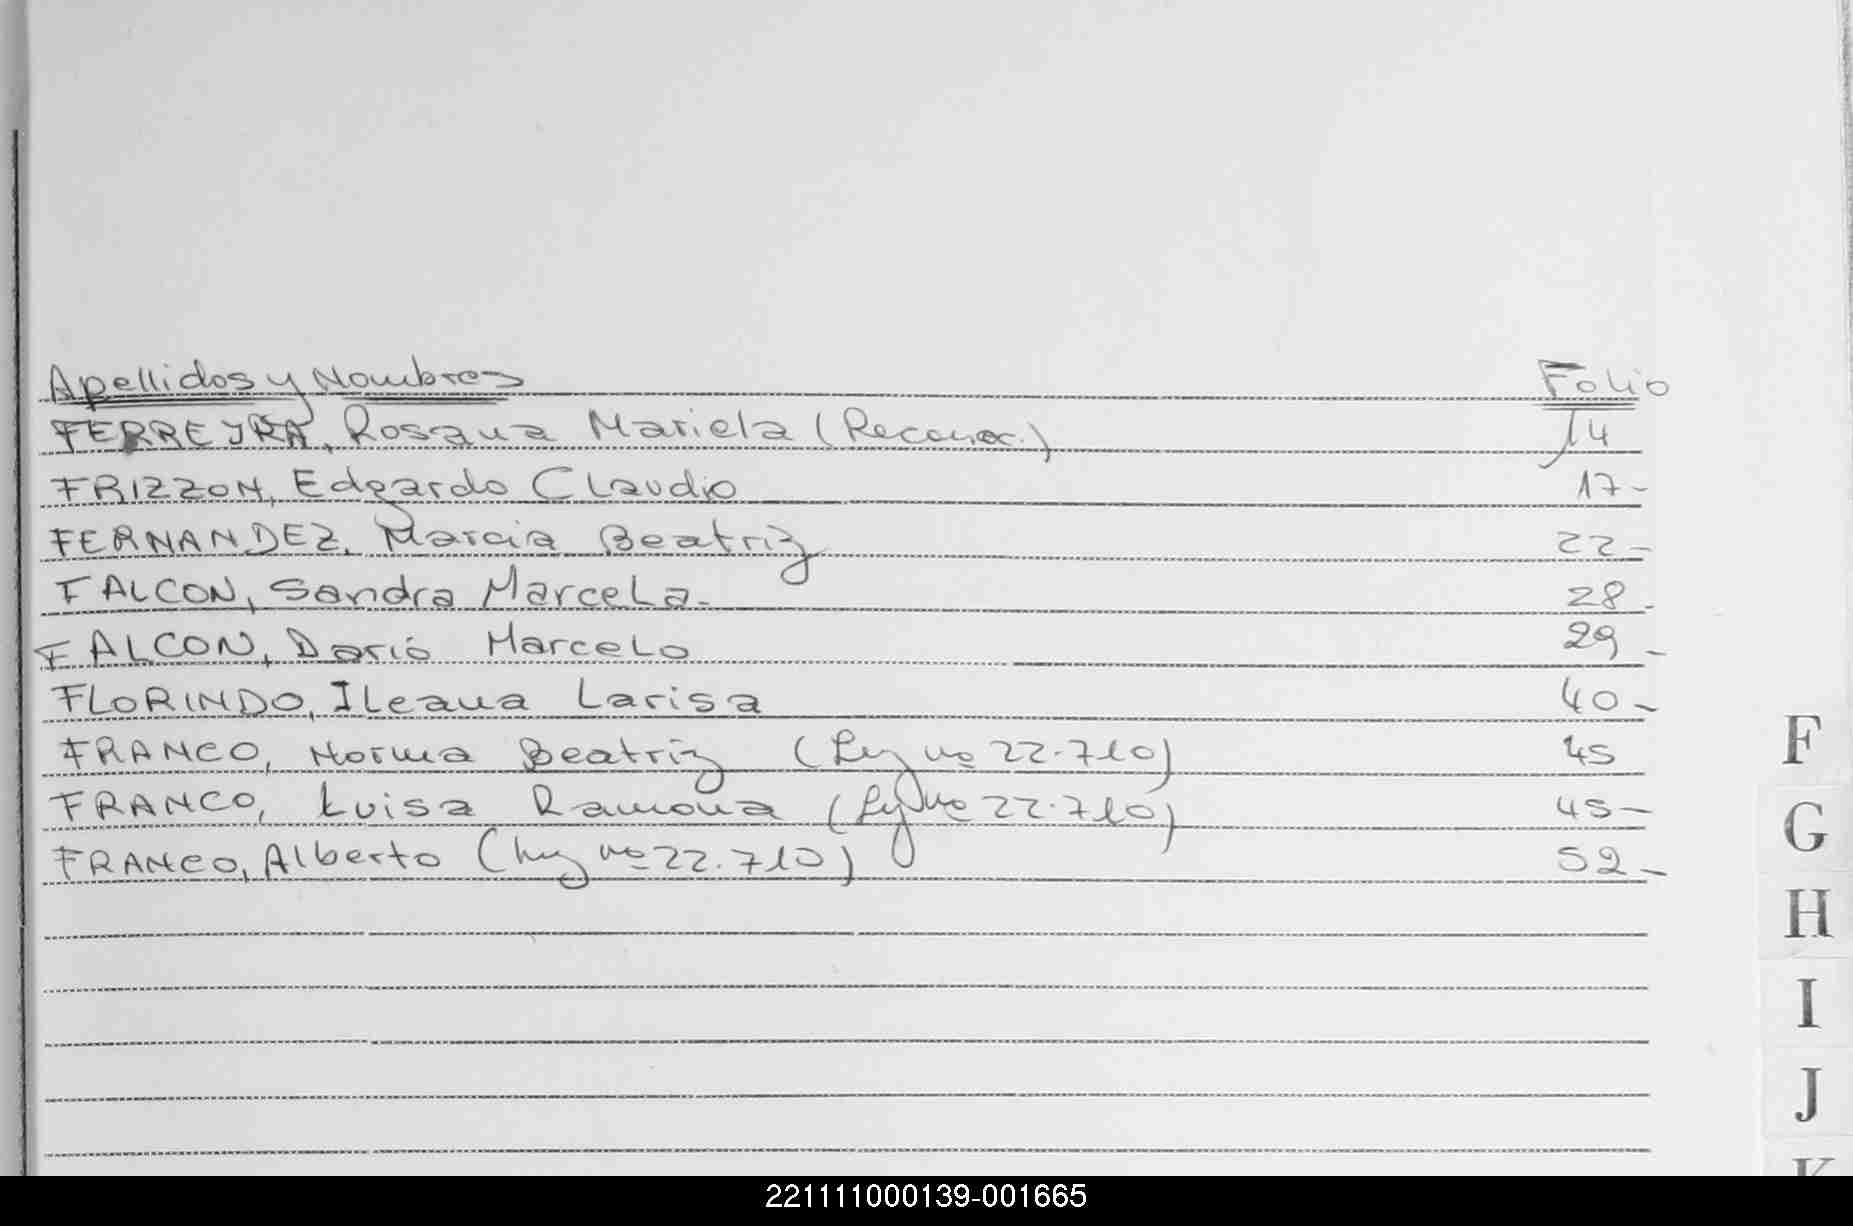 Apellidos y Nombres Folio
FERREJRA, Rosana Mariela (Reconoc.) 14
FRIZZON, Edgardo Claudio 17-
FERNANDEZ, Marcia Beatriz 22-
FALCON, Sandra Marcela. 28-
FALCON, Dario Marcelo 29-
FLORINDO, Ileana Larisa 40-
FRANCO, Norma Beatriz (Ley no 22.710) 45
FRANCO, Luisa Ramona (Ley no 22.710) 45-
FRANCO, Alberto (Ley no 22.710) 52-
F
G
H
I
J
K
221111000139-001665